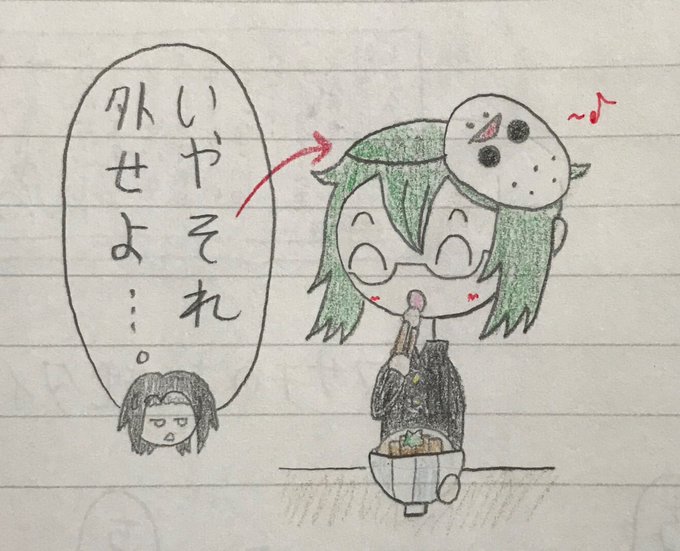 いやそれ
外せよ…。